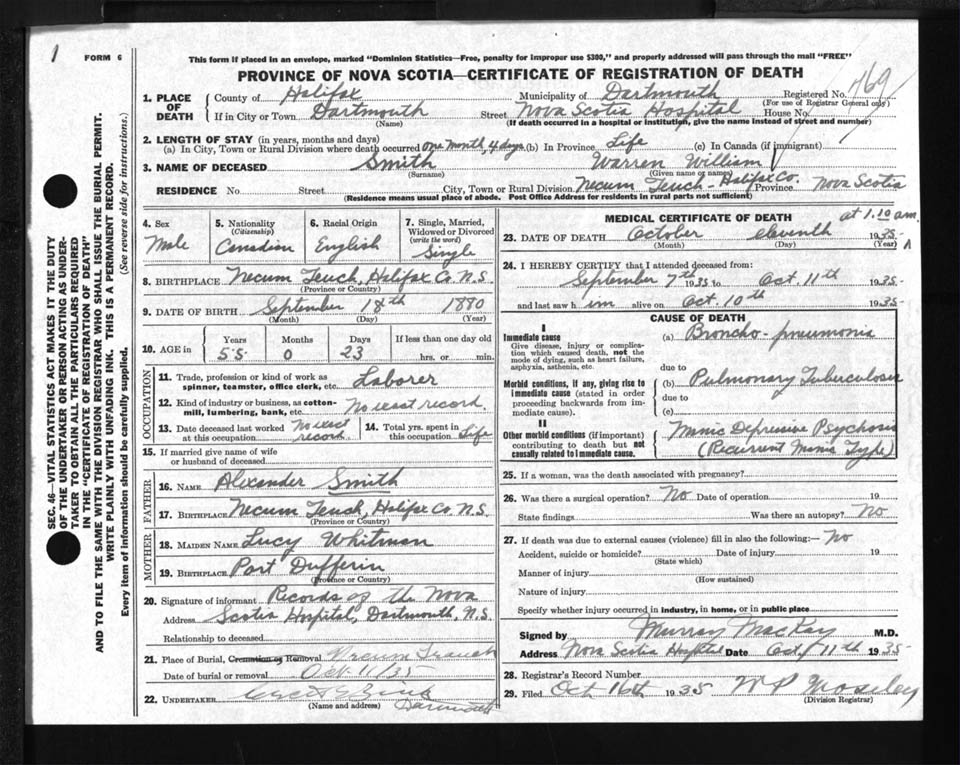 1
FORM 6
This form if placed in an envelope, marked "Dominion Statistics—Free, penalty for improper use $300," and properly addressed will pass through the mail "FREE"
PROVINCE OF NOVA SCOTIA—CERTIFICATE OF REGISTRATION OF DEATH
769
1. PLACE OF DEATH
County of Halifax Municipality of Dartmouth Registered No.
(For use of Registrar General only)
If in City or Town Dartmouth Street Nova Scotia Hospital House No.
(Name) (If death occurred in a hospital or institution, give the name instead of street and number)
2. LENGTH OF STAY (in years, months and days)
(a) In City, Town or Rural Division where death occurred one month, 4 days (b) In Province Life (c) In Canada (if immigrant)
3. NAME OF DECEASED Smith Warren William
(Surname) (Given name or names)
RESIDENCE No. Street City, Town or Rural Division Necum Teuch - Halifax Co. Province Nova Scotia
(Residence means usual place of abode. Post Office Address for residents in rural parts not sufficient)
SEC. 46—VITAL STATISTICS ACT MAKES IT THE DUTY
OF THE UNDERTAKER OR PERSON ACTING AS UNDER-
TAKER TO OBTAIN ALL THE PARTICULARS REQUIRED
IN THE "CERTIFICATE OF REGISTRATION OF DEATH"
AND TO FILE THE SAME WITH THE DIVISION REGISTRAR WHO SHALL ISSUE THE BURIAL PERMIT.
WRITE PLAINLY WITH UNFADING INK. THIS IS A PERMANENT RECORD.
Every item of information should be carefully supplied. (See reverse side for instructions.)
4. Sex
Male
5. Nationality
(Citizenship)
Canadian
6. Racial Origin
English
7. Single, Married,
Widowed or Divorced
(write the word)
Single
8. BIRTHPLACE Necum Teuch, Halifax Co. N.S.
(Province or Country)
9. DATE OF BIRTH September 18th 1880
(Month) (Day) (Year)
10. AGE in Years Months Days If less than one day old
55 0 23 hrs. or min.
OCCUPATION
11. Trade, profession or kind of work as
spinner, teamster, office clerk, etc. Laborer
12. Kind of industry or business, as cotton-
mill, lumbering, bank, etc. No exact record.
13. Date deceased last worked
at this occupation No exact record.
14. Total yrs. spent in
this occupation Life
15. If married give name of wife
or husband of deceased
FATHER
16. NAME Alexander Smith
17. BIRTHPLACE Necum Teuch, Halifax Co. N.S.
(Province or Country)
MOTHER
18. MAIDEN NAME Lucy Whitman
19. BIRTHPLACE Port Dufferin
(Province or Country)
20. Signature of informant Records of the Nova
Address Scotia Hospital, Dartmouth, N.S.
Relationship to deceased
21. Place of Burial, Cremation or Removal Necum Teauch
Date of burial or removal Oct 11/35
22. UNDERTAKER
(Name and address) Dartmouth
MEDICAL CERTIFICATE OF DEATH at 1.10 a.m.
23. DATE OF DEATH October eleventh 1935
(Month) (Day) (Year)
24. I HEREBY CERTIFY that I attended deceased from:
September 7th 1935 to Oct. 11th 1935
and last saw him alive on Oct. 10th 1935
CAUSE OF DEATH
I
Immediate cause
Give disease, injury or complica-
tion which caused death, not the
mode of dying, such as heart failure,
asphyxia, asthenia, etc.
(a) Broncho-pneumonia
due to
Morbid conditions, if any, giving rise to
immediate cause (stated in order
proceeding backwards from im-
mediate cause).
(b) Pulmonary Tuberculosis
due to
(c)
II
Other morbid conditions (if important)
contributing to death but not
causally related to immediate cause.
Manic Depressive Psychosis
(Recurrent Manic Type)
25. If a woman, was the death associated with pregnancy?
26. Was there a surgical operation? No Date of operation 19
State findings Was there an autopsy? No
27. If death was due to external causes (violence) fill in also the following:— No
Accident, suicide or homicide? Date of injury 19
(State which)
Manner of injury
(How sustained)
Nature of injury
Specify whether injury occurred in industry, in home, or in public place
Signed by Murray MacKay M.D.
Address Nova Scotia Hospital Date Oct. 11th 1935
28. Registrar's Record Number
29. Filed Oct 16th 1935 W P Moseley
(Division Registrar)